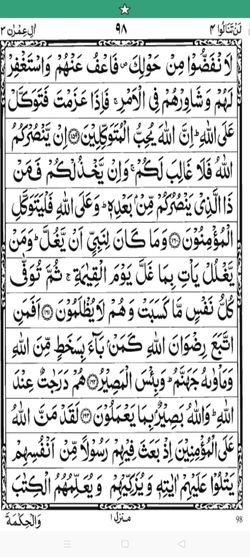 لَنْ تَنَالُوا ۴ ٩٨ اٰلِ عِمْرٰن ۳
لَانْفَضُّوْا مِنْ حَوْلِكَ ۪ فَاعْفُ عَنْهُمْ وَاسْتَغْفِرْ
لَهُمْ وَشَاوِرْهُمْ فِی الْاَمْرِ ۚ فَاِذَا عَزَمْتَ فَتَوَكَّلْ
عَلَی اللّٰهِ ؕ اِنَّ اللّٰهَ یُحِبُّ الْمُتَوَكِّلِیْنَ ﴿۱۵۹﴾ اِنْ یَّنْصُرْكُمُ
اللّٰهُ فَلَا غَالِبَ لَكُمْ ۚ وَاِنْ یَّخْذُلْكُمْ فَمَنْ
ذَا الَّذِیْ یَنْصُرُكُمْ مِّنْۢ بَعْدِهٖ ؕ وَعَلَی اللّٰهِ فَلْیَتَوَكَّلِ
الْمُؤْمِنُوْنَ ﴿۱۶۰﴾ وَمَا كَانَ لِنَبِیٍّ اَنْ یَّغُلَّ ؕ وَمَنْ
یَّغْلُلْ یَاْتِ بِمَا غَلَّ یَوْمَ الْقِیٰمَةِ ۚ ثُمَّ تُوَفّٰی
كُلُّ نَفْسٍ مَّا كَسَبَتْ وَهُمْ لَا یُظْلَمُوْنَ ﴿۱۶۱﴾ اَفَمَنِ
اتَّبَعَ رِضْوَانَ اللّٰهِ كَمَنْۢ بَآءَ بِسَخَطٍ مِّنَ اللّٰهِ
وَمَاْوٰىهُ جَهَنَّمُ ؕ وَبِئْسَ الْمَصِیْرُ ﴿۱۶۲﴾ هُمْ دَرَجٰتٌ عِنْدَ
اللّٰهِ ؕ وَاللّٰهُ بَصِیْرٌۢ بِمَا یَعْمَلُوْنَ ﴿۱۶۳﴾ لَقَدْ مَنَّ اللّٰهُ
عَلَی الْمُؤْمِنِیْنَ اِذْ بَعَثَ فِیْهِمْ رَسُوْلًا مِّنْ اَنْفُسِهِمْ
یَتْلُوْا عَلَیْهِمْ اٰیٰتِهٖ وَیُزَكِّیْهِمْ وَیُعَلِّمُهُمُ الْكِتٰبَ
منزل ۱ وَالْحِكْمَةَ
98